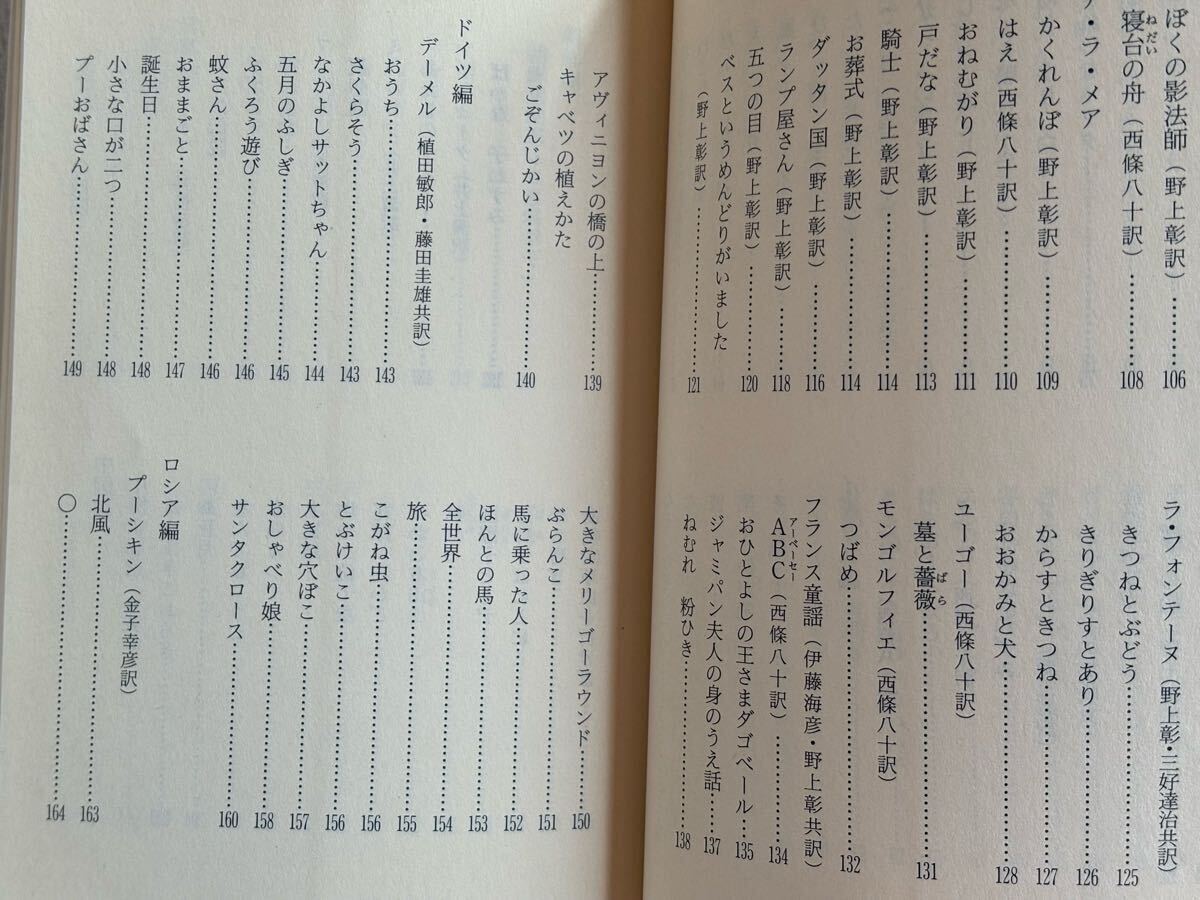 ぼくの影法師（野上彰訳）……106
寝台の舟（西條八十訳）……108
・ラ・メア
かくれんぼ（野上彰訳）……109
はえ（西條八十訳）……110
おねむがり（野上彰訳）……111
戸だな（野上彰訳）……113
騎士（野上彰訳）……114
お葬式（野上彰訳）……114
ダッタン国（野上彰訳）……116
ランプ屋さん（野上彰訳）……118
五つの目（野上彰訳）……120
ベスというめんどりがいました
（野上彰訳）……121
ラ・フォンテーヌ（野上彰・三好達治共訳）
きつねとぶどう……125
きりぎりすとあり……126
からすときつね……127
おおかみと犬……128
ユーゴー（西條八十訳）
墓と薔薇……131
モンゴルフィエ（西條八十訳）
つばめ……132
フランス童謡（伊藤海彦・野上彰共訳）
ABC（西條八十訳）……134
おひとよしの王さまダゴベール……135
ジャミパン夫人の身のうえ話……137
ねむれ　粉ひき……138
アヴィニヨンの橋の上……139
キャベツの植えかた
ごぞんじかい……140
ドイツ編
デーメル（植田敏郎・藤田圭雄共訳）
おうち……143
さくらそう……143
なかよしサットちゃん……144
五月のふしぎ……145
ふくろう遊び……146
蚊さん……146
おままごと……147
誕生日……148
小さな口が二つ……148
プーおばさん……149
大きなメリーゴーラウンド……150
ぶらんこ……151
馬に乗った人……152
ほんとの馬……153
全世界……154
旅……155
こがね虫……156
とぶけいこ……156
大きな穴ぽこ……157
おしゃべり娘……158
サンタクロース……160
ロシア編
プーシキン（金子幸彦訳）
北風……163
〇……164